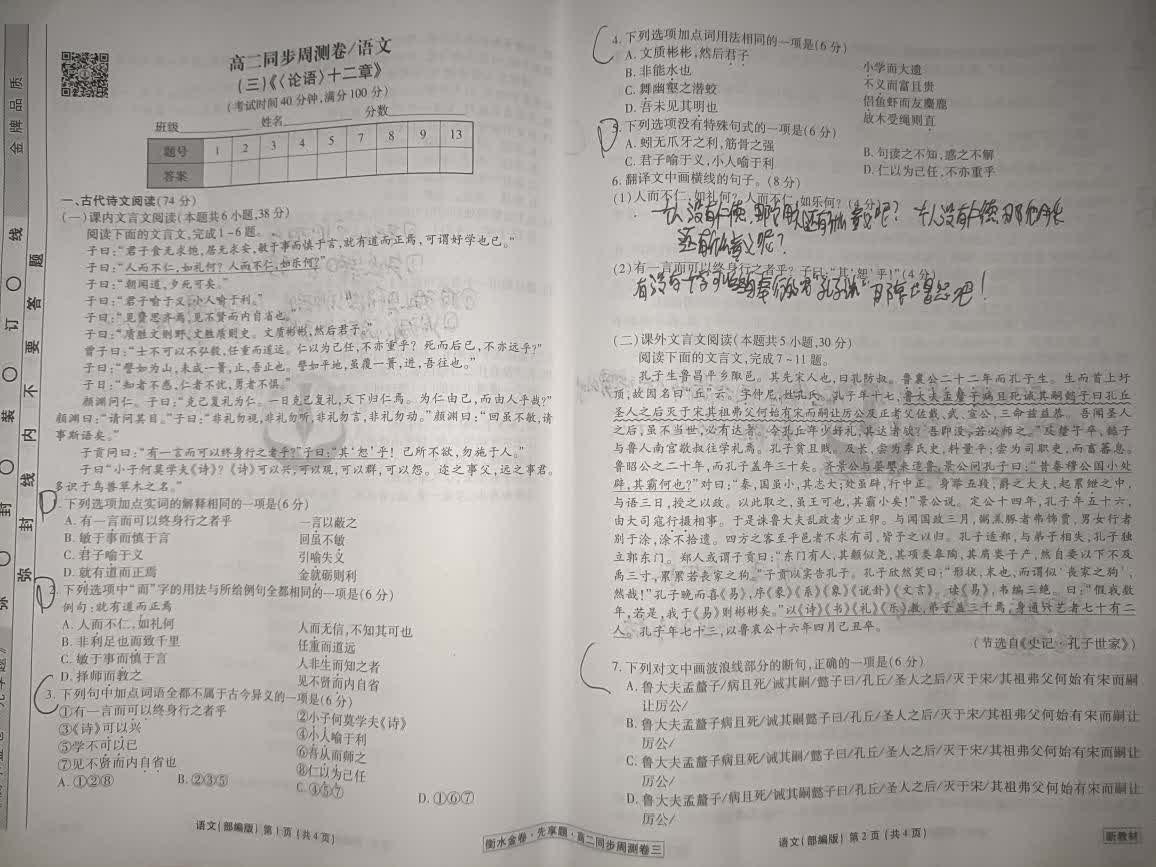 金牌品质
弥 封 装 订 线
弥封线内不要答题
高二同步周测卷/语文
(三)《〈论语〉十二章》
(考试时间40分钟,满分100分)
班级 姓名 分数
题号 1 2 3 4 5 7 8 9 13
答案
一、古代诗文阅读(74分)
(一)课内文言文阅读(本题共6小题,38分)
阅读下面的文言文,完成1~6题。
子曰:“君子食无求饱,居无求安,敏于事而慎于言,就有道而正焉,可谓好学也已。”
子曰:“人而不仁,如礼何?人而不仁,如乐何?”
子曰:“朝闻道,夕死可矣。”
子曰:“君子喻于义,小人喻于利。”
子曰:“见贤思齐焉,见不贤而内自省也。”
子曰:“质胜文则野,文胜质则史。文质彬彬,然后君子。”
曾子曰:“士不可以不弘毅,任重而道远。仁以为己任,不亦重乎?死而后已,不亦远乎?”
子曰:“譬如为山,未成一篑,止,吾止也。譬如平地,虽覆一篑,进,吾往也。”
子曰:“知者不惑,仁者不忧,勇者不惧。”
颜渊问仁。子曰:“克己复礼为仁。一日克己复礼,天下归仁焉。为仁由己,而由人乎哉?”
颜渊曰:“请问其目。”子曰:“非礼勿视,非礼勿听,非礼勿言,非礼勿动。”颜渊曰:“回虽不敏,请
事斯语矣。”
子贡问曰:“有一言而可以终身行之者乎?”子曰:“其‘恕’乎!己所不欲,勿施于人。”
子曰:“小子何莫学夫《诗》?《诗》可以兴,可以观,可以群,可以怨。迩之事父,远之事君。
多识于鸟兽草木之名。”
D
1.下列选项加点实词的解释相同的一项是(6分)
A.有一言而可以终身行之者乎 一言以蔽之
B.敏于事而慎于言 回虽不敏
C.君子喻于义 引喻失义
D.就有道而正焉 金就砺则利
D
2.下列选项中“而”字的用法与所给例句全都相同的一项是(6分)
例句:就有道而正焉
A.人而不仁,如礼何 人而无信,不知其可也
B.非利足也而致千里 任重而道远
C.敏于事而慎于言 人非生而知之者
D.择师而教之 见不贤而内自省
C
3.下列句中加点词语全都不属于古今异义的一项是(6分)
①有一言而可以终身行之者乎 ②小子何莫学夫《诗》
③《诗》可以兴 ④小人喻于利
⑤学不可以已 ⑥吾从而师之
⑦见不贤而内自省也 ⑧仁以为己任
A.①②⑧ B.②③⑤ C.④⑤⑦ D.①⑥⑦
语文(部编版) 第1页(共4页)
C
4.下列选项加点词用法相同的一项是(6分)
A.文质彬彬,然后君子 小学而大遗
B.非能水也 不义而富且贵
C.舞幽壑之潜蛟 侣鱼虾而友麋鹿
D.吾未见其明也 故木受绳则直
D
5.下列选项没有特殊句式的一项是(6分)
A.蚓无爪牙之利,筋骨之强 B.句读之不知,惑之不解
C.君子喻于义,小人喻于利 D.仁以为己任,不亦重乎
6.翻译文中画横线的句子。(8分)
(1)人而不仁,如礼何?人而不仁,如乐何?(4分)
一个人没有仁德,那 还有什么意义呢?一个人没有仁德,那
还有什么意义呢?
(2)有一言而可以终身行之者乎?子曰:“其‘恕’乎!”(4分)
有没有一个字可以 奉行的?孔子说:“那 是恕吧!
(二)课外文言文阅读(本题共5小题,30分)
阅读下面的文言文,完成7~11题。
孔子生鲁昌平乡陬邑。其先宋人也,曰孔防叔。鲁襄公二十二年而孔子生。生而首上圩
顶,故因名曰“丘”云。字仲尼,姓孔氏。孔子年十七,鲁大夫孟釐子病且死诫其嗣懿子曰孔丘
圣人之后灭于宋其祖弗父何始有宋而嗣让厉公及正考父佐戴、武、宣公,三命兹益恭。吾闻圣人
之后,虽不当世,必有达者。今孔丘年少好礼,其达者欤?吾即没,若必师之。”及釐子卒,懿子
与鲁人南宫敬叔往学礼焉。孔子贫且贱。及长,尝为季氏史,料量平;尝为司职吏,而畜蕃息。
鲁昭公之二十年,而孔子盖年三十矣。齐景公与晏婴来适鲁,景公问孔子曰:“昔秦穆公国小处
辟,其霸何也?”对曰:“秦,国虽小,其志大;处虽辟,行中正。身举五羖,爵之大夫,起累绁之中,
与语三日,授之以政。以此取之,虽王可也,其霸小矣!”景公说。定公十四年,孔子年五十六,
由大司寇行摄相事。于是诛鲁大夫乱政者少正卯。与闻国政三月,粥羔豚者弗饰贾,男女行者
别于涂,涂不拾遗。四方之客至乎邑者不求有司,皆予之以归。孔子适郑,与弟子相失,孔子独
立郭东门。郑人或谓子贡曰:“东门有人,其颡似尧,其项类皋陶,其肩类子产,然自要以下不及
禹三寸,累累若丧家之狗。”子贡以实告孔子。孔子欣然笑曰:“形状,末也,而谓似‘丧家之狗’,
然哉!”孔子晚而喜《易》,序《彖》《系》《象》《说卦》《文言》。读《易》,韦编三绝。曰:“假我数
年,若是,我于《易》则彬彬矣。”以《诗》《书》《礼》《乐》教,弟子盖三千焉,身通六艺者七十有二
人。孔子年七十三,以鲁哀公十六年四月己丑卒。
(节选自《史记·孔子世家》)
C
7.下列对文中画波浪线部分的断句,正确的一项是(6分)
A.鲁大夫孟釐子/病且死/诫其嗣/懿子曰/孔丘/圣人之后/灭于宋/其祖弗父何始有宋而嗣
让厉公/
B.鲁大夫孟釐子病且死/诫其嗣懿子曰/孔丘/圣人之后/灭于宋/其祖弗父何始有宋而嗣让
厉公/
C.鲁大夫孟釐子病且死/诫其嗣/懿子曰/孔丘/圣人之后/灭于宋/其祖弗父何始有宋而嗣让
厉公/
D.鲁大夫孟釐子/病且死/诫其嗣懿子曰/孔丘/圣人之后/灭于宋/其祖弗父何始有宋而嗣让
厉公/
衡水金卷·先享题·高二同步周测卷三
语文(部编版) 第2页(共4页)
新教材